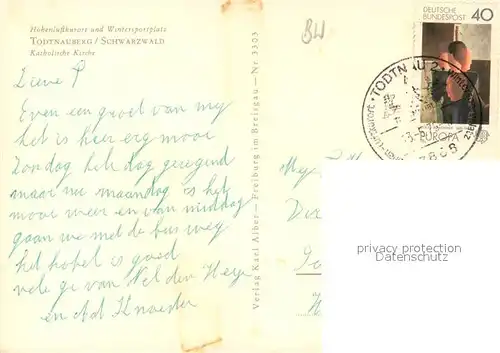 Höhenluftkurort und Wintersportplatz
TODTNAUBERG / SCHWARZWALD
Katholische Kirche
BW
Lieve P
Even een groet van my
het is hier erg mooi
Zondag hele dag geregend
maar nu maandag is het
mooi weer en van middag
gaan we met de bus weg
het hotel is goed
vele gr van Nel den Heyer
en Ad Knoester
Verlag Karl Alber — Freiburg im Breisgau — Nr 3353
DEUTSCHE
BUNDESPOST
40
EUROPA
TODTNAU 2
7868
privacy protection
Datenschutz